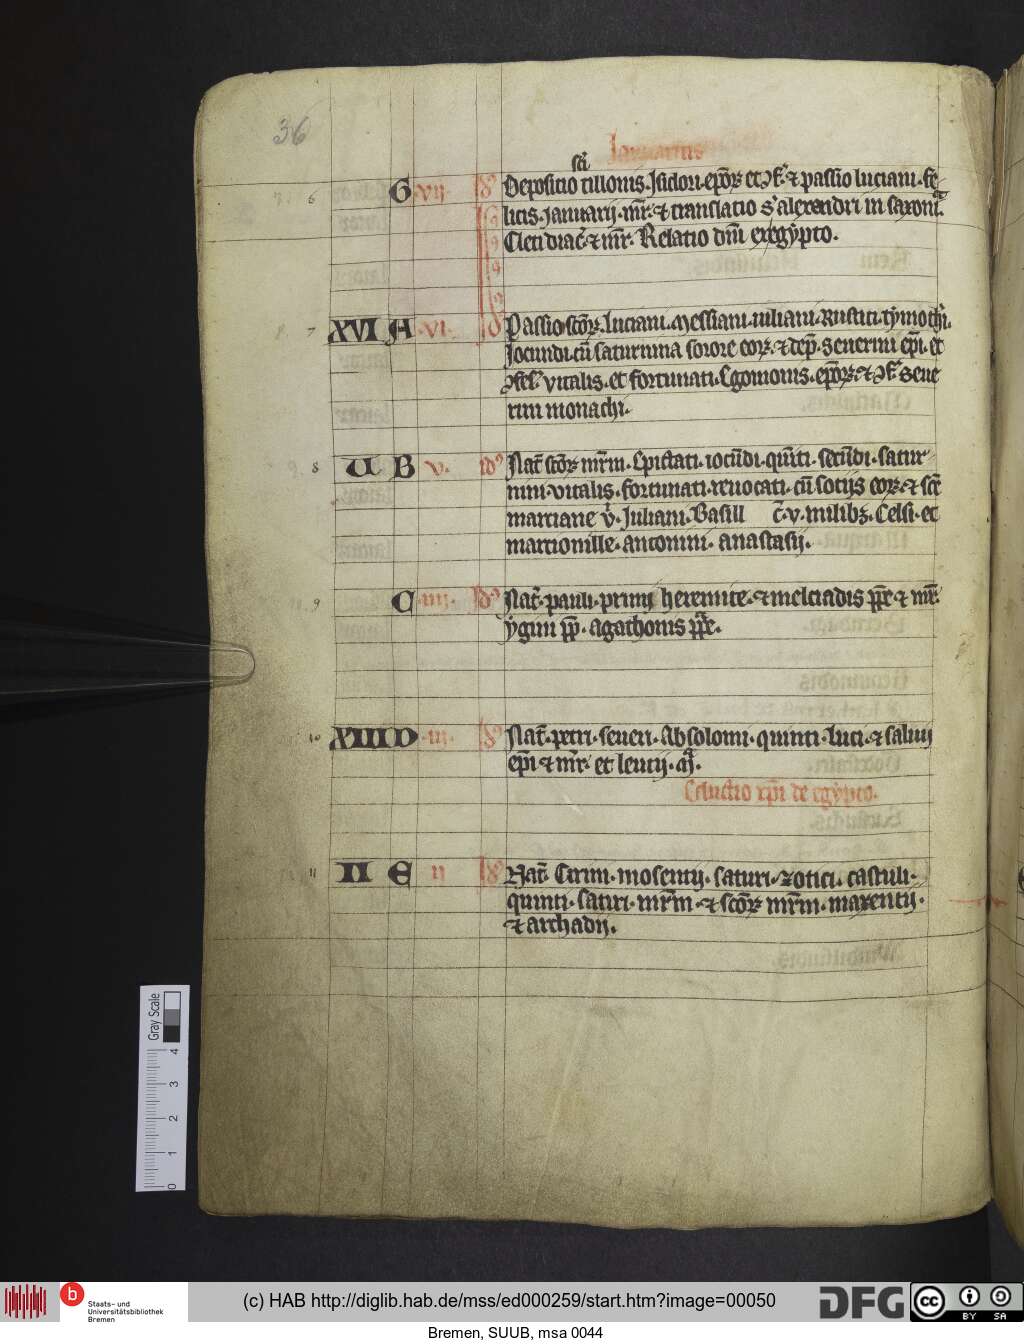 36
Januarius
sci
6 G vij
Depositio tillonis. Isidori. epor et et passio luciani. fe
licis. Januarij. mr. et translatio s alexandri in saxonia
Cleri diac. et mr. Relatio dni ex egypto.
7 XVI A vi. Passio scor. luciani. Messiani. iuliani. Rustici. tymothei.
Jocundi. cu saturnina sorore eor. et dep. Seuerini epi. et
vitalis. et fortunati. Egomonis. epor. et Seue
rini monachi.
8 U B v. id Nat scor mrm. Epictati. iocudi. quiti. secudi. satur
nini. vitalis. fortunati. reuocati. cu socijs eor. et sce
marciane v. Juliani. Basill c. v. milibz. Celsi. et
marcionille. antonini. anastasij.
9 C iiij. Id Nat. pauli. primi heremite. et melciadis ppe et mr.
ygini pp. agathonis ppe.
10 XIIII D iii. Id Nat. petri. seueri. Absolomi. quinti. luci. et saluij
epi et mr. et leucij.
Eductio xpi de egypto.
11 II E ii Id Nat. Cirini. mosentij. saturi. zotici. castuli.
quinti. satiri. mrm. et scor mrm. maxentij.
et archadij.
Gray Scale
4
3
2
1
0
b
Staats- und
Universitätsbibliothek
Bremen
(c) HAB http://diglib.hab.de/mss/ed000259/start.htm?image=00050
DFG
cc
BY SA
Bremen, SUUB, msa 0044